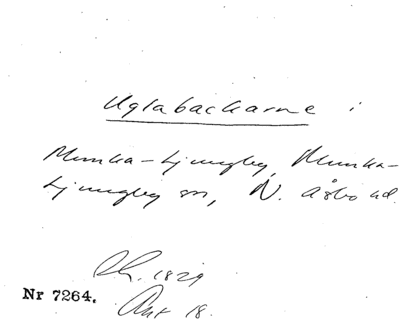 Uglabackarne i
Munka-Ljungby, Munka-
Ljungby sn, N. Åsbo hd.
Sk. 1829
Nr 7264. Akt 18.